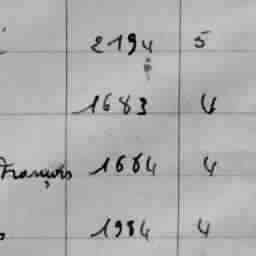 2194 5
1683 4
François 1664 4
1984 4